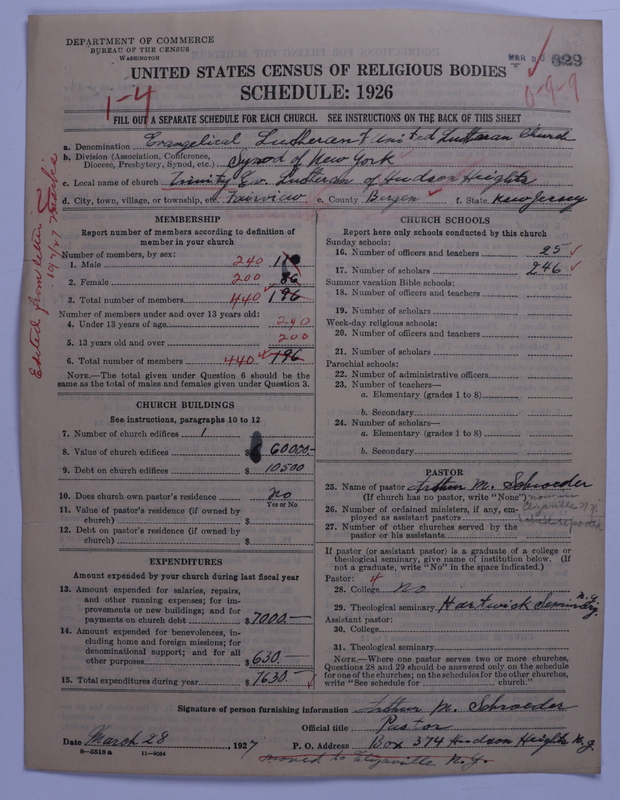 DEPARTMENT OF COMMERCE
BUREAU OF THE CENSUS
WASHINGTON
MAR 30 829
UNITED STATES CENSUS OF RELIGIOUS BODIES
SCHEDULE: 1926
1-4
0-9-9
FILL OUT A SEPARATE SCHEDULE FOR EACH CHURCH. SEE INSTRUCTIONS ON THE BACK OF THIS SHEET
a. Denomination Evangelical Lutheran United Lutheran Church
b. Division (Association, Conference, Diocese, Presbytery, Synod, etc.) Synod of New York
c. Local name of church Trinity Ev. Lutheran of Hudson Heights
d. City, town, village, or township, etc. Fairview e. County Bergen f. State New Jersey
Edited from letter 10/7/27
MEMBERSHIP
Report number of members according to definition of
member in your church
Number of members, by sex:
1. Male 240 110
2. Female 200 86
3. Total number of members 440 196
Number of members under and over 13 years old:
4. Under 13 years of age 240
5. 13 years old and over 200
6. Total number of members 440 196
NOTE.—The total given under Question 6 should be the
same as the total of males and females given under Question 3.
CHURCH BUILDINGS
See instructions, paragraphs 10 to 12
7. Number of church edifices 1
8. Value of church edifices $ 60000-
9. Debt on church edifices $ 10500
10. Does church own pastor's residence no
Yes or No
11. Value of pastor's residence (if owned by
church) $
12. Debt on pastor's residence (if owned by
church) $
EXPENDITURES
Amount expended by your church during last fiscal year
13. Amount expended for salaries, repairs,
and other running expenses; for im-
provements or new buildings; and for
payments on church debt $ 7000.—
14. Amount expended for benevolences, in-
cluding home and foreign missions; for
denominational support; and for all
other purposes $ 630.—
15. Total expenditures during year $ 7630.—
CHURCH SCHOOLS
Report here only schools conducted by this church
Sunday schools:
16. Number of officers and teachers 25
17. Number of scholars 246
Summer vacation Bible schools:
18. Number of officers and teachers
19. Number of scholars
Week-day religious schools:
20. Number of officers and teachers
21. Number of scholars
Parochial schools:
22. Number of administrative officers
23. Number of teachers—
a. Elementary (grades 1 to 8)
b. Secondary
24. Number of scholars—
a. Elementary (grades 1 to 8)
b. Secondary
PASTOR
25. Name of pastor Arthur M. Schroeder
(If church has no pastor, write "None") now in
26. Number of ordained ministers, if any, em-
ployed as assistant pastors
27. Number of other churches served by the
pastor or his assistants
If pastor (or assistant pastor) is a graduate of a college or
theological seminary, give name of institution below. (If
not a graduate, write "No" in the space indicated.)
Pastor: 4
28. College no
29. Theological seminary Hartwick Seminary N.Y.
Assistant pastor:
30. College
31. Theological seminary
NOTE.—Where one pastor serves two or more churches,
Questions 28 and 29 should be answered only on the schedule
for one of the churches; on the schedules for the other churches,
write "See schedule for church."
Signature of person furnishing information Arthur M. Schroeder
Official title Pastor
Date March 28, 1927 P. O. Address Box 374 Hudson Heights N.J.
8—5518 a 11—9054
moved to N.Y.